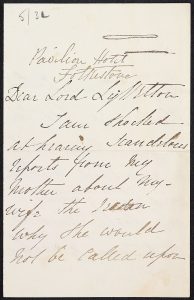 5/32
Pavilion Hotel
Folkestone
Dear Lord Lyttelton
I am shocked
at hearing Scandalous
reports from my
Mother about my
wife the reason
why she would
not be called upon